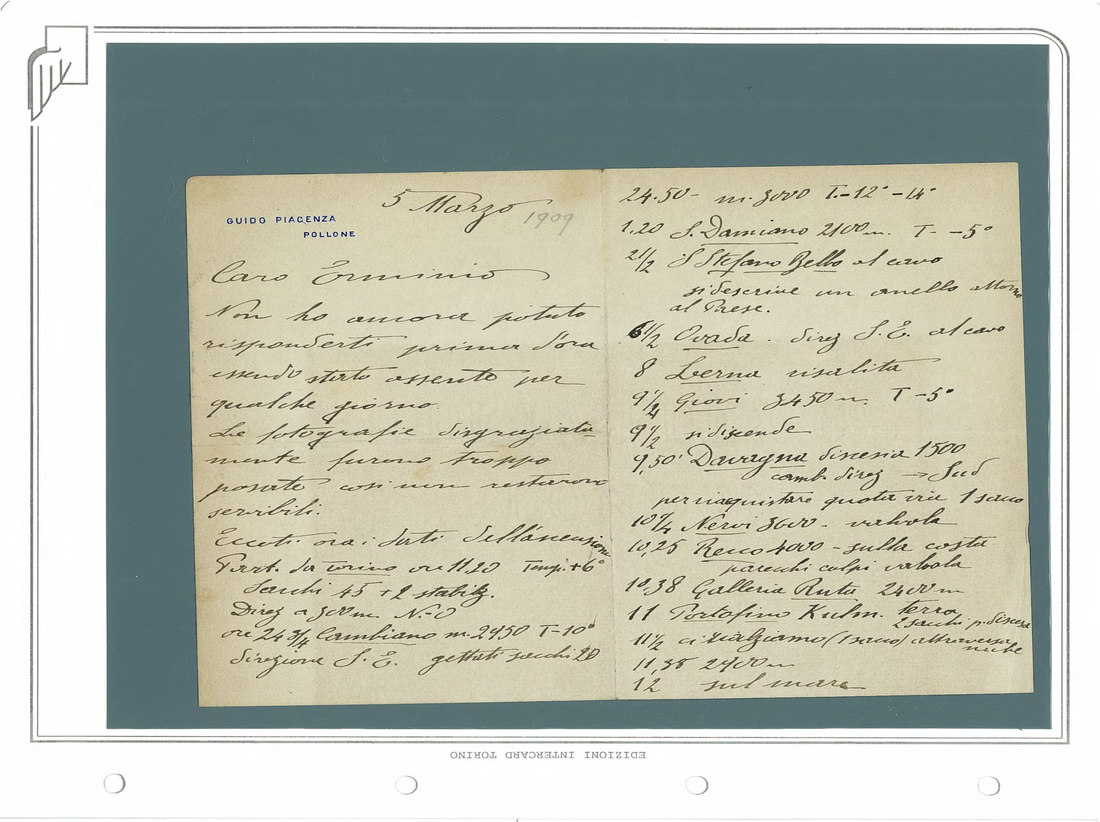 GUIDO PIACENZA
POLLONE
5 Marzo 1909
Caro Erminio
Non ho ancora potuto
risponderti prima d'ora
essendo stato assente per
qualche giorno.
Le fotografie disgraziata-
mente furono troppo
posate così non restarono
servibili.
Eccoti ora i dati dell'ascensione
Part. da Torino ore 11.20 Temp. +6°
Sacchi 45 + 2 stabiliz.
Direz a 300 m. N.O
ore 24 3/4 Cambiano m. 2950 T-10°
direzione S. E. gettati sacchi 20
24.50 - m. 3000 T. -12° -14°
1.20 S. Damiano 2100 m. T- -5°
2 1/2 S Stefano Belbo al cavo
si descrive un anello attorno
al Paese.
6 1/2 Ovada . direz S. E. al cavo
8 Lerma risalita
9 1/4 Giovi 3450 m. T -5°
9 1/2 si discende
9,50' Davagna discesa 1500
camb. direz → Sud
per riaquistare quota via 1 sacco
10 1/4 Nervi 3600 - valvola
10,25 Recco 4000 - sulla costa
parecchi colpi valvola
10,38 Galleria Ruta 2400 m
11 Portofino Kulm. terra
2 sacchi p. discesa
11 1/2 ci rialziamo (1 sacco) attraverso
nube
11,35 2900 m
12 sul mare
EDIZIONI INTERCARD TORINO